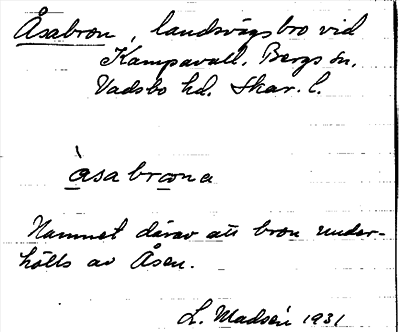 Åsabron, landsvägsbro vid
Kampavall, Bergs sn,
Vadsbo hd. Skar. l.
àsabrωna
Namnet därav att bron under-
hölls av Åsen.
L. Madsén 1931